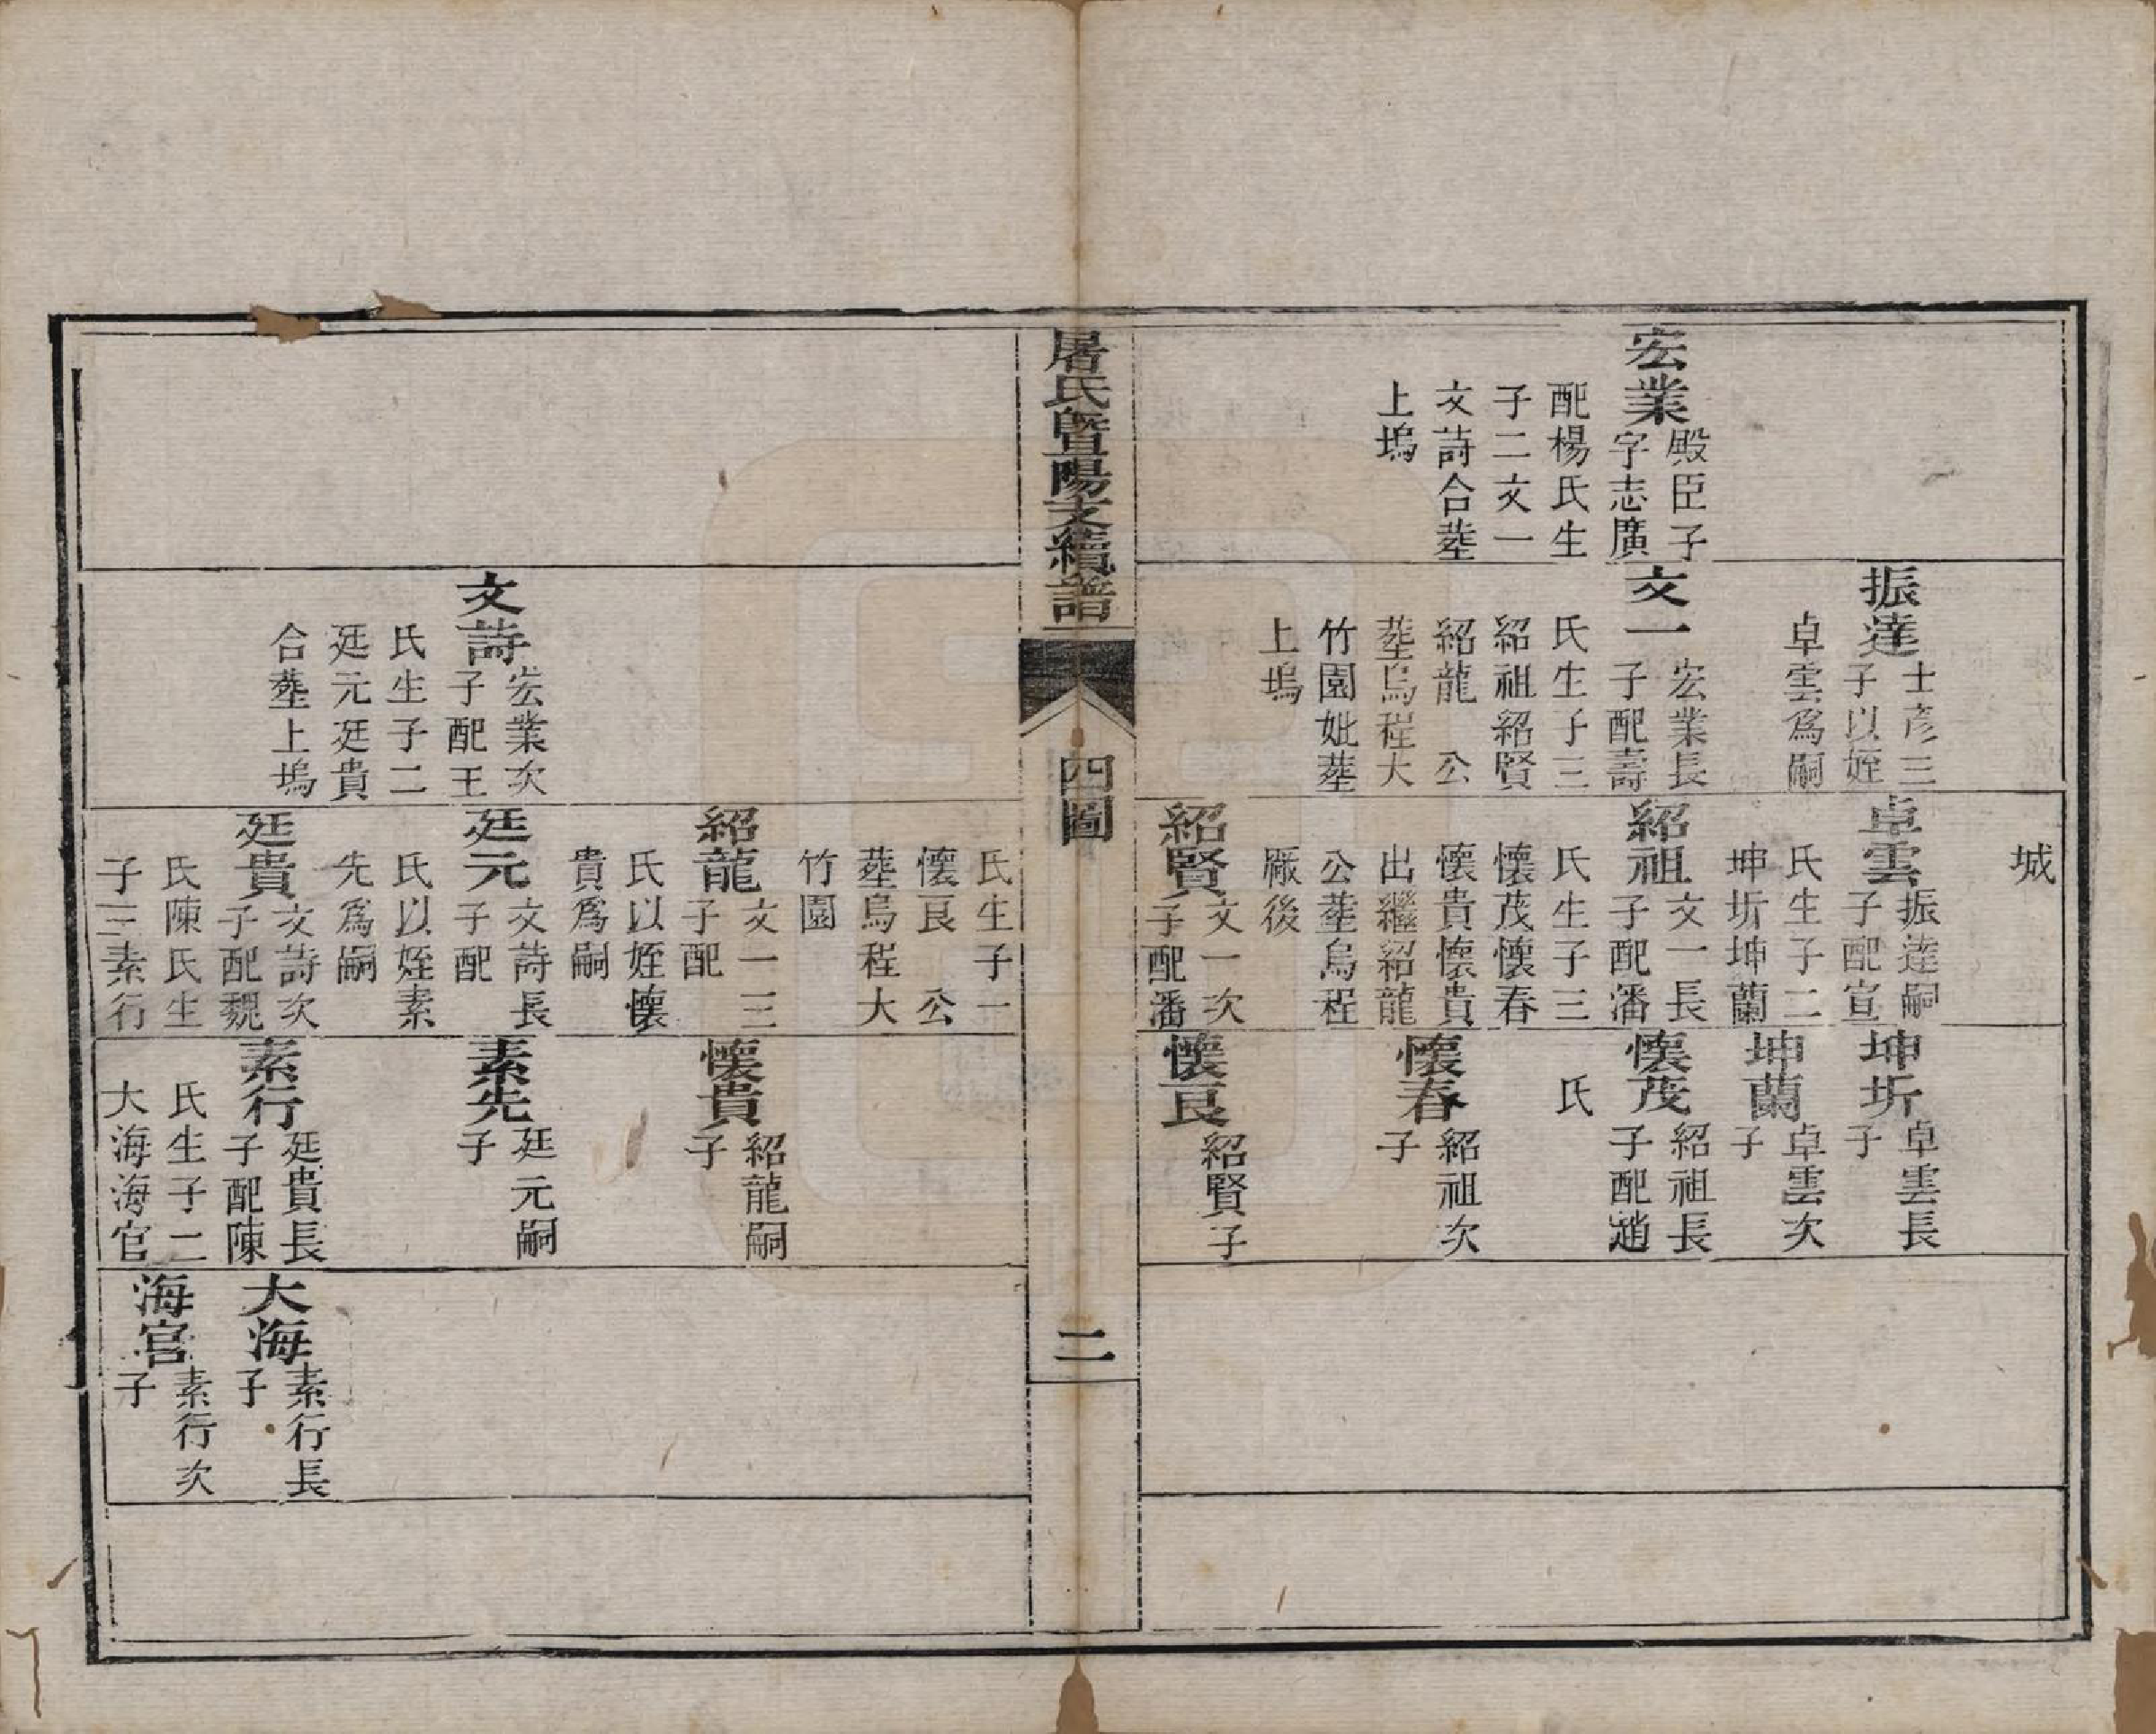 宏業
殿臣子
字志廣
配楊氏生
子二文一
文詩合塟
上塢
振達
士彦三
子以姪
卓雲爲嗣
文一
宏業長
子配壽
氏生子三
紹祖紹賢
紹龍　公
塟烏程大
竹園妣塟
上塢
城
卓雲
振達嗣
子配宣
氏生子二
坤圻坤蘭
紹祖
文一長
子配潘
氏生子三
懷茂懷春
懷貴懷貴
出繼紹龍
公塟烏程
厰後
紹賢
文一次
子配潘
坤圻
卓雲長
子
坤蘭
卓雲次
子
懷茂
紹祖長
子配趙
氏
懷春
紹祖次
子
懷良
紹賢子
屠氏暨陽支續譜
四圖
二
文詩
宏業次
子配王
氏生子二
廷元廷貴
合塟上塢
氏生子一
懷良　公
塟烏程大
竹園
紹龍
文一三
子配
氏以姪懷
貴爲嗣
廷元
文詩長
子配
氏以姪素
先爲嗣
廷貴
文詩次
子配魏
氏陳氏生
子三素行
懷貴
紹龍嗣
子
素先
廷元嗣
子
素行
廷貴長
子配陳
氏生子二
大海海官
大海
素行長
子
海官
素行次
子